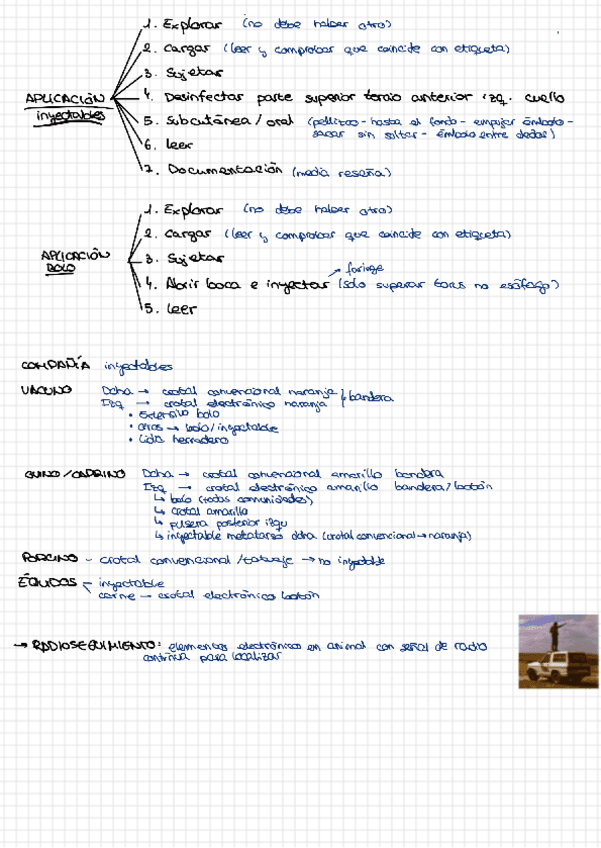 1. Explorar (no debe haber otro)
2. Cargar (leer y comprobar que coincide con etiqueta)
3. Sujetar
APLICACIÓN inyectables
4. Desinfectar parte superior tercio anterior izq. cuello
5. Subcutánea / oral (pellizco - hasta el fondo - empujar émbolo - sacar sin soltar - émbolo entre dedos)
6. Leer
7. Documentación (media reseña)
1. Explorar (no debe haber otro)
2. Cargar (leer y comprobar que coincide con etiqueta)
APLICACIÓN BOLO
3. Sujetar
faringe
4. Abrir boca e inyectar (sólo superar torus no esófago)
5. Leer
COMPAÑÍA inyectables
VACUNO Dcha → crotal convencional naranja / bandera
Izq → crotal electrónico naranja
• Extensivo bolo
• otros → bolo / inyectable
• Lidia herradero
OVINO / CAPRINO Dcha → crotal convencional amarillo bandera
Izq → crotal electrónico amarillo bandera / botón
↳ bolo (todas comunidades)
↳ crotal amarillo
↳ pulsera posterior izqu
↳ inyectable metatarso ddra (crotal convencional → naranja)
PORCINO - crotal convencional / tatuaje → no inyectable
ÉQUIDOS - inyectable
carne - crotal electrónico botón
→ RADIOSEGUIMIENTO: elementos electrónicos en animal con señal de radio
continua para localizar